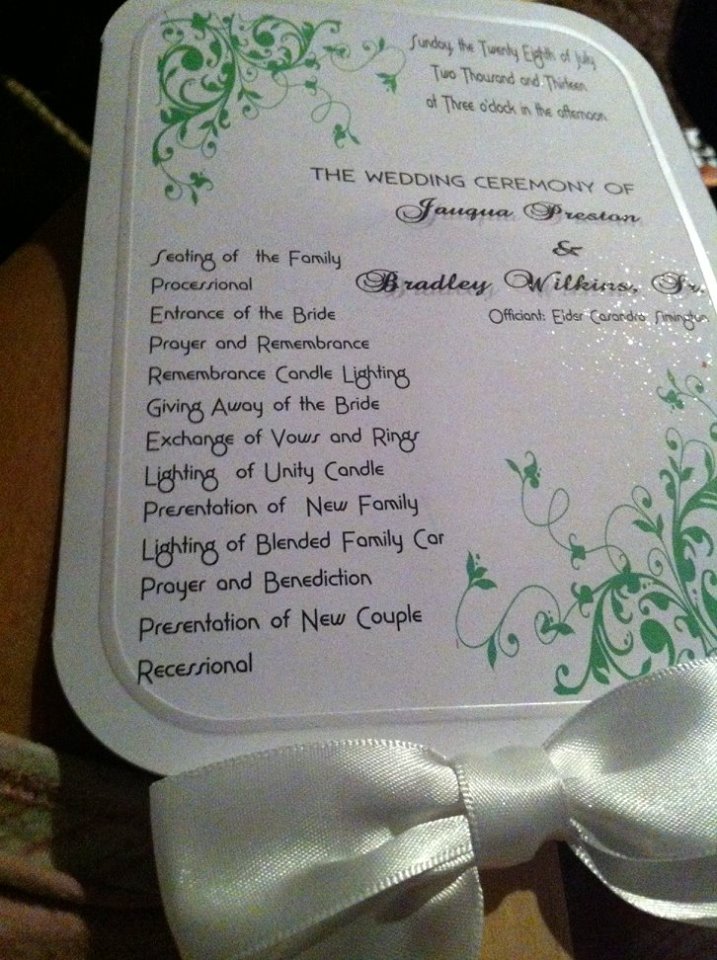 Sunday, the Twenty Eighth of July
Two Thousand and Thirteen
at Three o'clock in the afternoon
THE WEDDING CEREMONY OF
Jauqua Preston
&
Bradley Wilkins, Sr.
Officiant: Elder Casandra Simington
Seating of the Family
Processional
Entrance of the Bride
Prayer and Remembrance
Remembrance Candle Lighting
Giving Away of the Bride
Exchange of Vows and Rings
Lighting of Unity Candle
Presentation of New Family
Lighting of Blended Family Car
Prayer and Benediction
Presentation of New Couple
Recessional